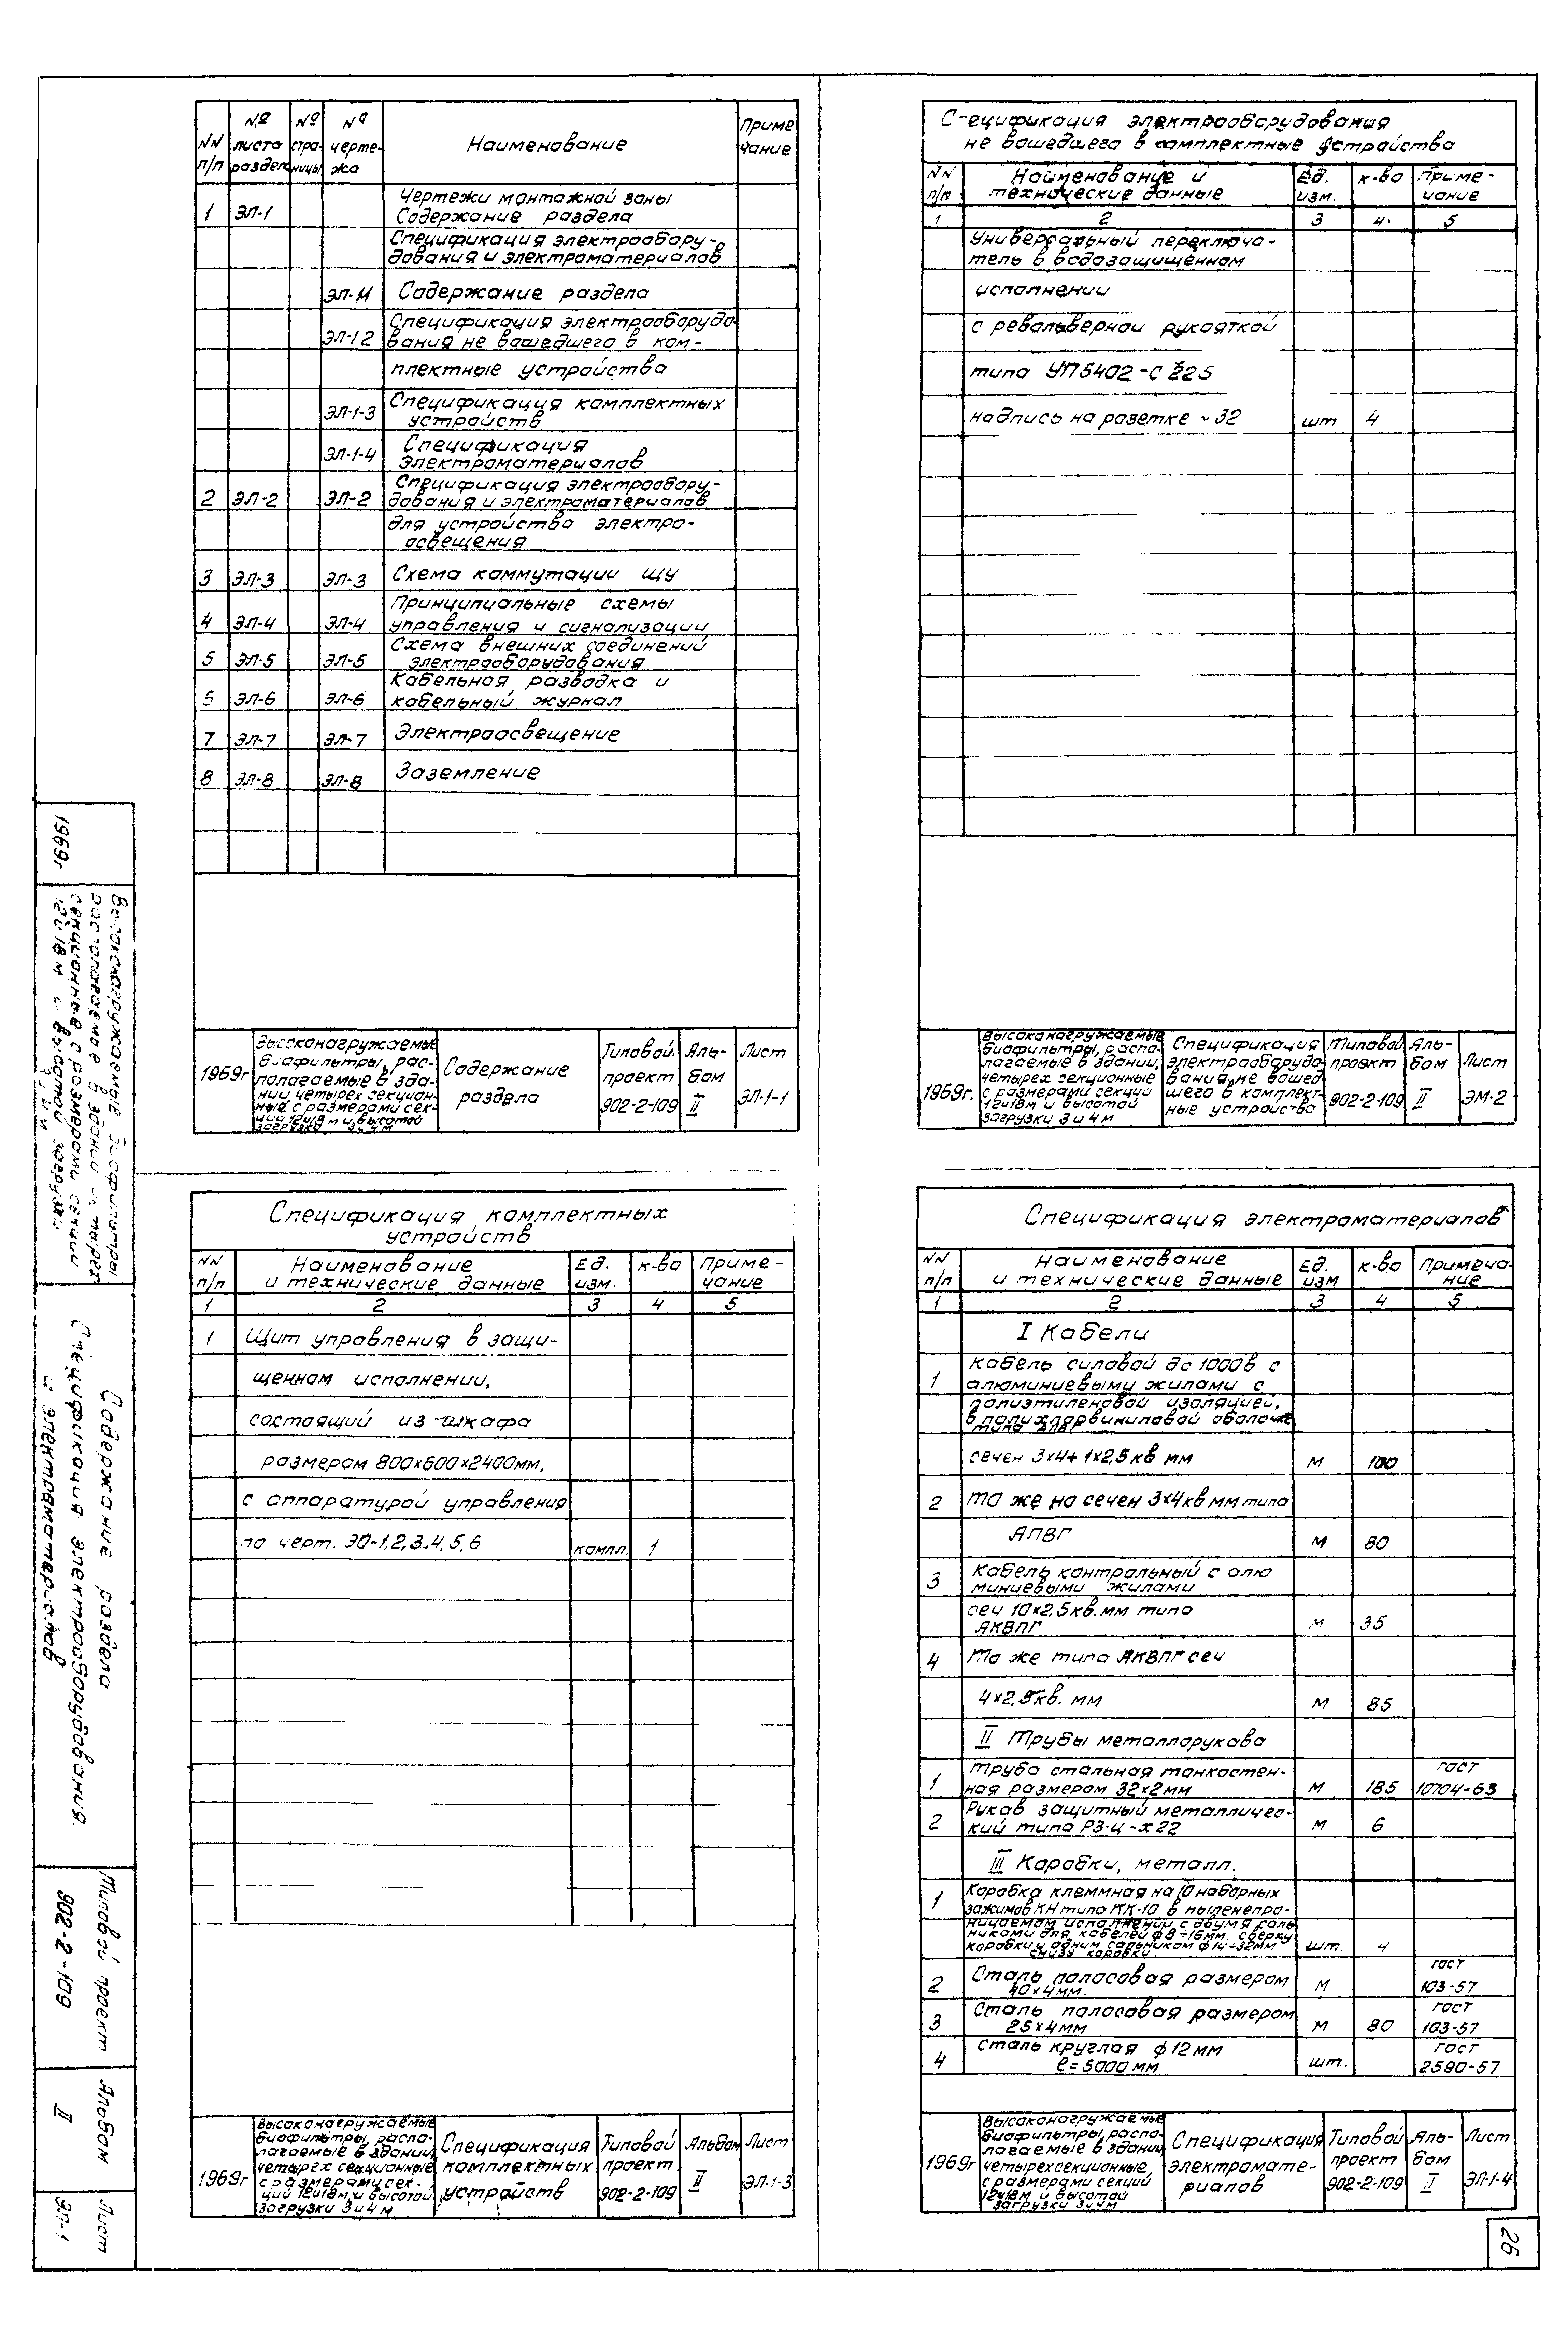 NN п/п | №º листа раздела | №º страницы | №º чертежа | Наименование | Примечание
Чертежи монтажной зоны
1 | ЭЛ-1 | Содержание раздела
Спецификация электрообору-
дования и электроматериалов
ЭЛ-1-1 | Содержание раздела
Спецификация электрооборудо-
ЭЛ-1-2 | вания не вошедшего в ком-
плектные устройства
ЭЛ-1-3 | Спецификация комплектных
устройств
ЭЛ-1-4 | Спецификация
электроматериалов
Спецификация электрообору-
2 | ЭЛ-2 | ЭЛ-2 | дования и электроматериалов
для устройства электро-
освещения
3 | ЭЛ-3 | ЭЛ-3 | Схема коммутации ЩУ
Принципиальные схемы
4 | ЭЛ-4 | ЭЛ-4 | управления и сигнализации
Схема внешних соединений
5 | ЭЛ-5 | ЭЛ-5 | электрооборудования
Кабельная разводка и
6 | ЭЛ-6 | ЭЛ-6 | кабельный журнал
7 | ЭЛ-7 | ЭЛ-7 | Электроосвещение
8 | ЭЛ-8 | ЭЛ-8 | Заземление
1969г
Высоконагружаемые
биофильтры, рас-
полагаемые в зда-
нии, четырех секцион-
ные с размерами сек-
ций 12и18м и высотой
загрузки 3и4м
Содержание
раздела
Типовой
проект
902-2-109
Аль-
бом
II
Лист
ЭЛ-1-1
Спецификация электрооборудования
не вошедшего в комплектные устройства
NN п/п | Наименование и технические данные | Ед. изм. | к-во | Приме-чание
1 | 2 | 3 | 4 | 5
Универсальный переключа-
тель в водозащищенном
исполнении
с револьверной рукояткой
типа УП5402-С 225
надпись на розетке ~32 | шт | 4
1969г.
Высоконагружаемые
биофильтры, распо-
лагаемые в здании,
четырех секционные
с размерами секций
12и18м и высотой
загрузки 3 и 4 м
Спецификация
электрооборудо-
вания, не вошед-
шего в комплект-
ные устройства
Типовой
проект
902-2-109
Аль-
бом
II
Лист
ЭМ-2
Спецификация комплектных
устройств
NN п/п | Наименование и технические данные | Ед. изм. | к-во | Приме-чание
1 | 2 | 3 | 4 | 5
1 | Щит управления в защи-
щенном исполнении,
состоящий из шкафа
размером 800х600х2400мм,
с аппаратурой управления
по черт. ЭО-1,2,3,4,5,6 | компл. | 1
1969г
Высоконагружаемые
биофильтры, распо-
лагаемые в здании,
четырех секционные
с размерами сек-
ций 12и18м и высотой
загрузки 3 и 4 м
Спецификация
комплектных
устройств
Типовой
проект
902-2-109
Альбом
II
Лист
ЭЛ-1-3
Спецификация электроматериалов
NN п/п | Наименование и технические данные | Ед. изм | к-во | Примеча-ние
1 | 2 | 3 | 4 | 5
I Кабели
Кабель силовой до 1000в с
1 | алюминиевыми жилами с
полиэтиленовой изоляцией,
в полихлорвиниловой оболочке
типа АПВГ
сечен 3х4+1х2,5 кв мм | м | 100
2 | То же но сечен 3х4 кв мм типа
АПВГ | м | 80
3 | Кабель контрольный с алю
миниевыми жилами
сеч 10х2,5 кв. мм типа
АКВПГ | м | 35
4 | То же типа АКВПГ сеч
4х2,5 кв. мм | м | 85
II Трубы металлорукава
Труба стальная тонкостен- | гост
1 | ная размером 32х2мм | м | 185 | 10704-63
Рукав защитный металличес-
2 | кий типа РЗ-Ц-х22 | м | 6
III Коробки, металл.
1 | Коробка клеммная на 10 наборных
зажимов КН типа КК-10 в пыленепро-
ницаемом исполнении с двумя саль
никами для кабелей ф8÷16мм. сверху
коробки и одним сальником ф14÷32мм | шт. | 4
снизу коробки.
2 | Сталь полосовая размером | м | гост
40х4мм. | 103-57
3 | Сталь полосовая размером | гост
25х4мм | м | 80 | 103-57
Сталь круглая ф12мм | гост
4 | ℓ=5000мм | шт. | 2590-57
1969г
Высоконагружаемые
биофильтры, распо-
лагаемые в здании,
четырехсекционные
с размерами секций
12и18м и высотой
загрузки 3и4м
Спецификация
электромате-
риалов
Типовой
проект
902-2-109
Аль-
бом
II
Лист
ЭЛ-1-4
1969г
Высоконагружаемые биофильтры
располагаемые в здании четырех
секционные с размерами секции
12и18м и высотой загрузки
3 и 4 м
Содержание раздела
Спецификация электрооборудования
и электроматериалов
Типовой проект
902-2-109
Альбом
II
Лист
ЭЛ-1
26